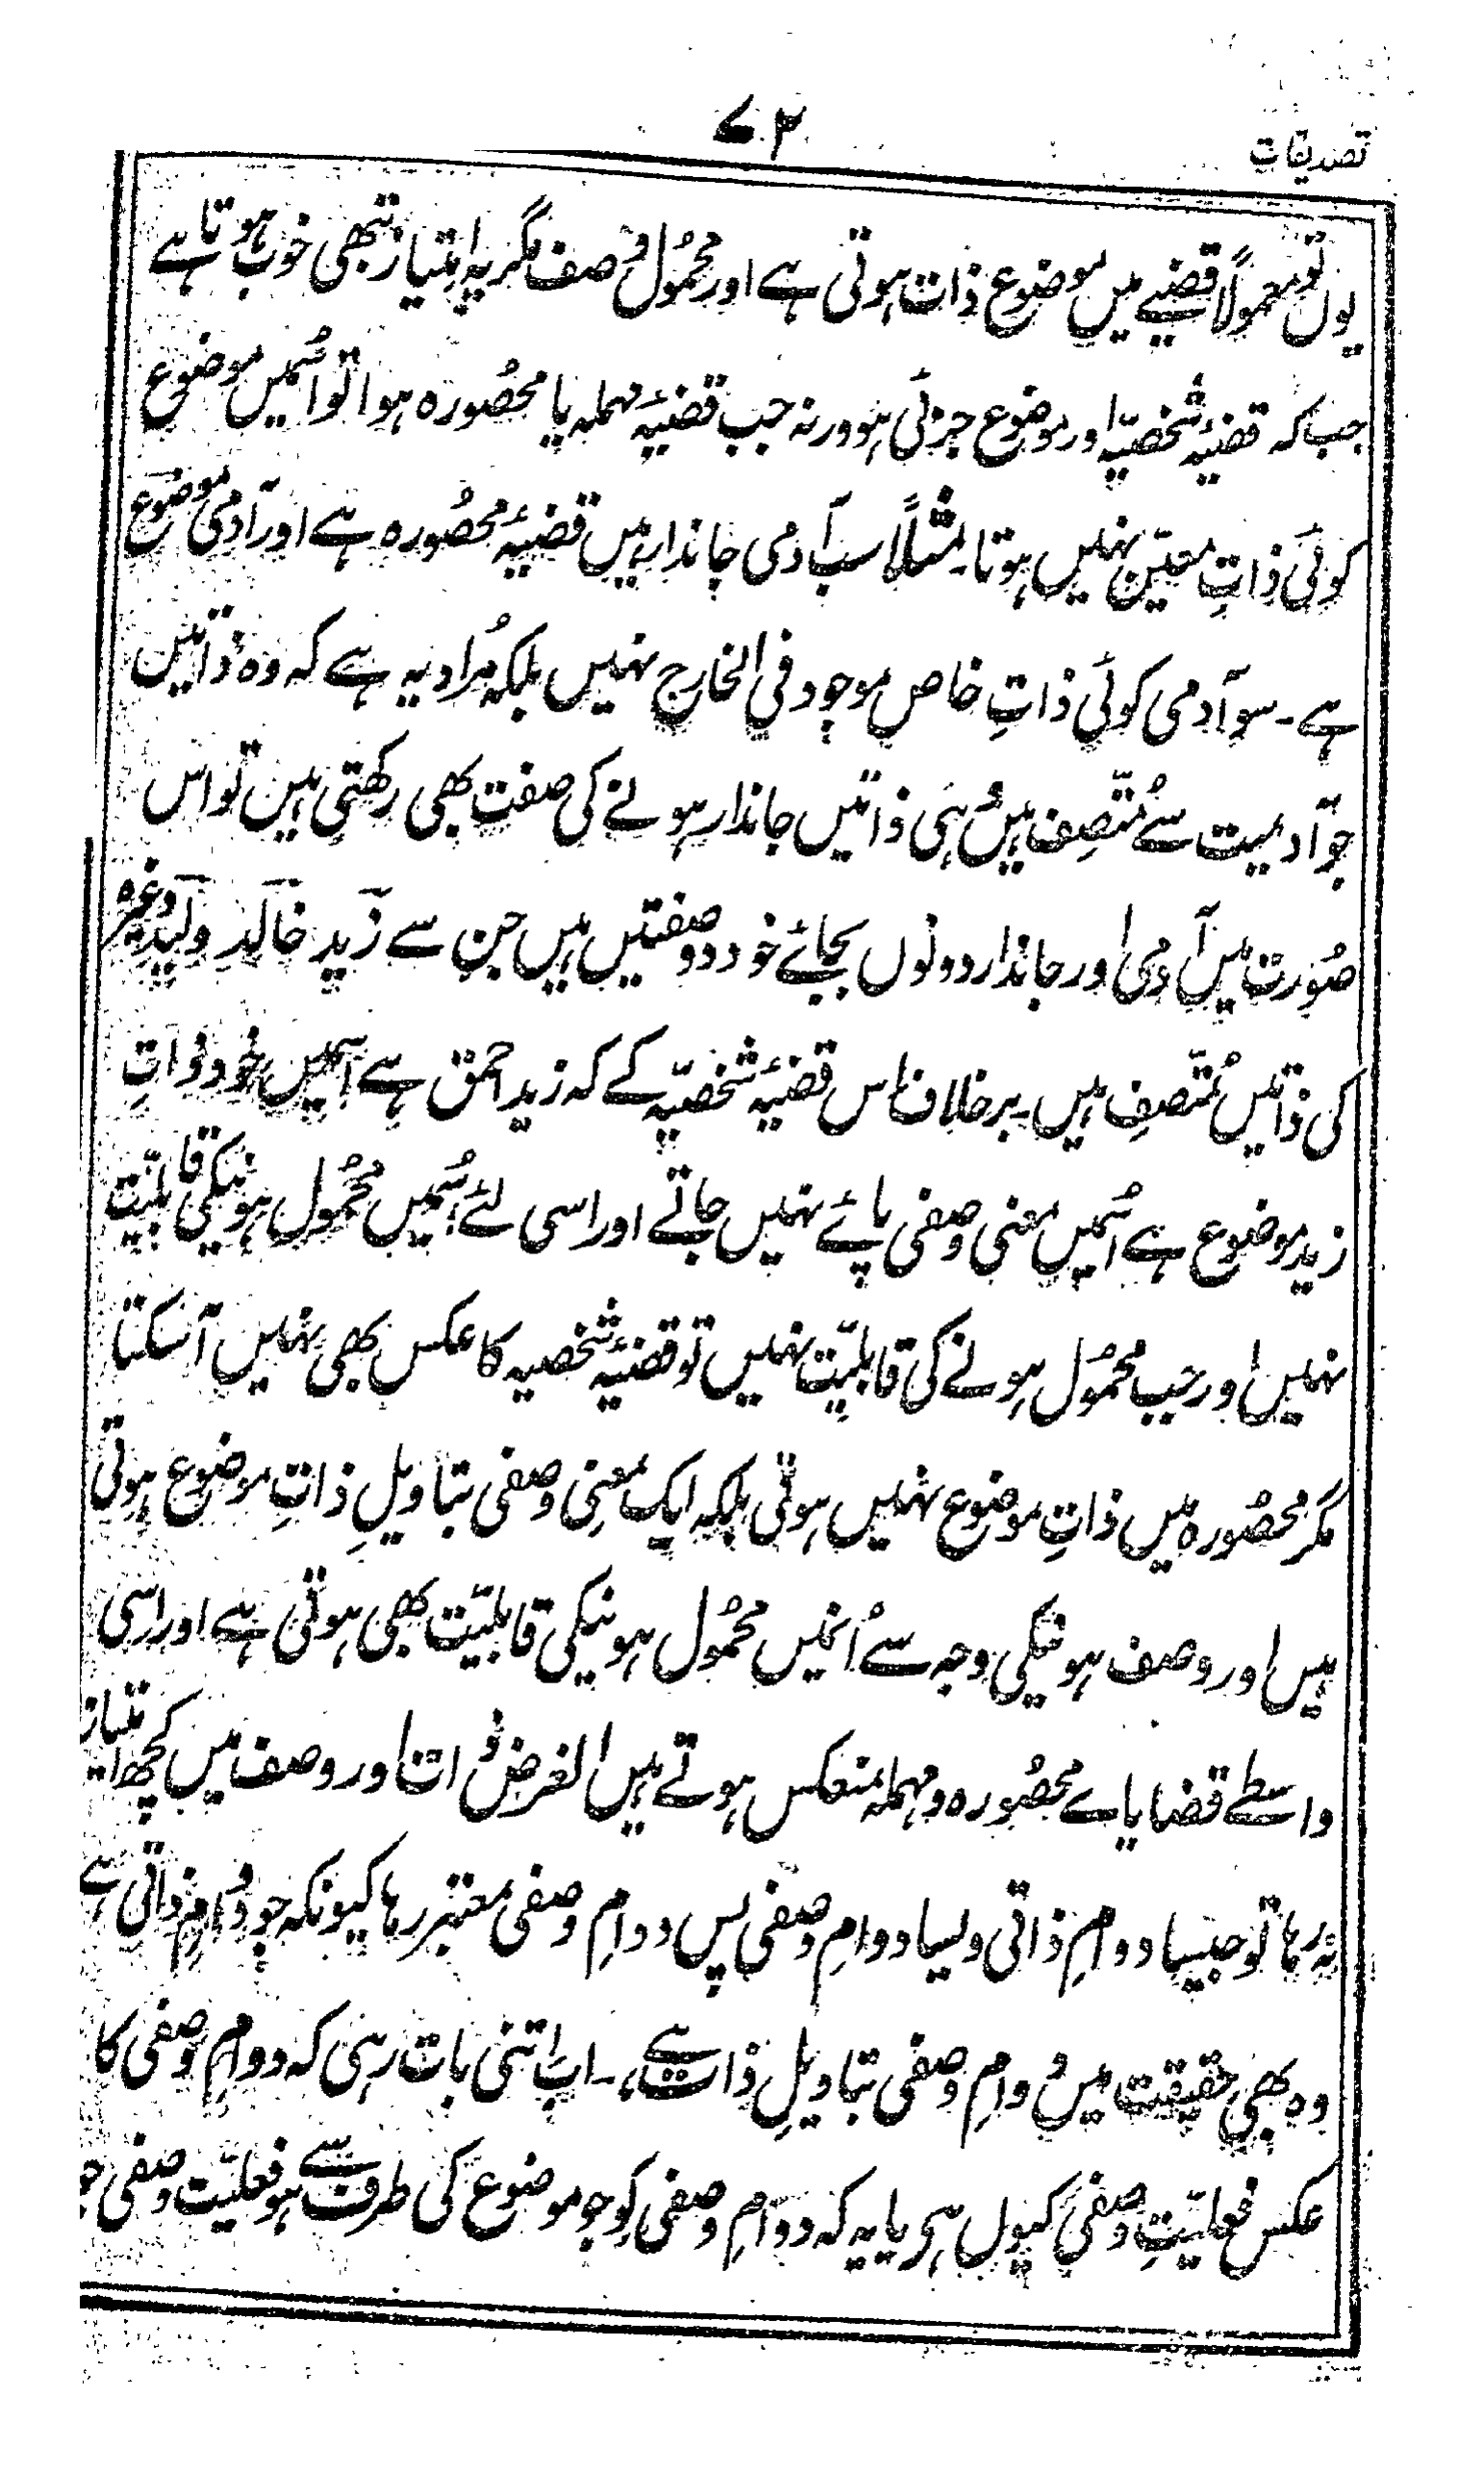 تصدیقات
۷۳
یوں تو معمولاً قضیے میں موضوع ذات ہوتی ہے اور محمُول وصف مگر یہ امتیاز تبھی خوب ہوتا ہے
جب کہ قضیۂ شخصیّہ اور موضوع جزئی ہو ورنہ جب قضیۂ مہملہ یا محصُورہ ہوا تو اسُمیں موضوع
کوئی ذاتِ معیّن نہیں ہوتا۔ مثلًا سب آدمی جاندار ہیں قضیۂ محصُورہ ہے اور آدمی موضوع
ہے۔ سو آدمی کوئی ذاتِ خاص موجود فی الخارج نہیں بلکہ مُراد یہ ہے کہ وہ ذاتیں
جو آدمیت سے مُتّصِف ہیں وہی ذاتیں جاندار ہونے کی صفت بھی رکھتی ہیں تو اس
صُورت میں آدمی اور جاندار دونوں بجائے خود دو صفتیں ہیں جن سے زید خالد ولید وغیرہ
کی ذاتیں مُتّصِف ہیں۔ برخلاف اس قضیۂ شخصیّہ کے کہ زید احمق ہے اسمیں خود ذواتِ
زید موضوع ہے اسُمیں معنی وصفی پائے نہیں جاتے اور اسی لئے اسُمیں محمُول ہونیکی قابلیّت
نہیں اور جب محمُول ہونے کی قابلیّت نہیں تو قضیۂ شخصیہ کا عکس بھی نہیں آسکتا
مگر محصُورہ میں ذاتِ موضوع نہیں ہوتی بلکہ ایک معنی وصفی بتاویلِ ذاتِ موضوع ہوتی
ہیں اور وصف ہونیکی وجہ سے اُنمیں محمُول ہونیکی قابلیّت بھی ہوتی ہے اور اسی
واسطے قضایاے محصُورہ و مہملہ منعکس ہوتے ہیں الغرض ذات اور وصف میں کچھ امتیاز
نہ رہا تو جیسا دوامِ ذاتی ویسا دوامِ وصفی پس دوامِ وصفی معتبر رہا کیونکہ جو دوامِ ذاتی ہے
وہ بھی حقیقت میں دوامِ وصفی بتاویلِ ذات ہے،۔ اب اتنی بات رہی کہ دوامِ وصفی کا
عکس فعلیّتِ وصفی کیوں ہی یا یہ کہ دوامِ وصفی کو جو موضوع کی طرف سے ہو فعلیّت وصفی